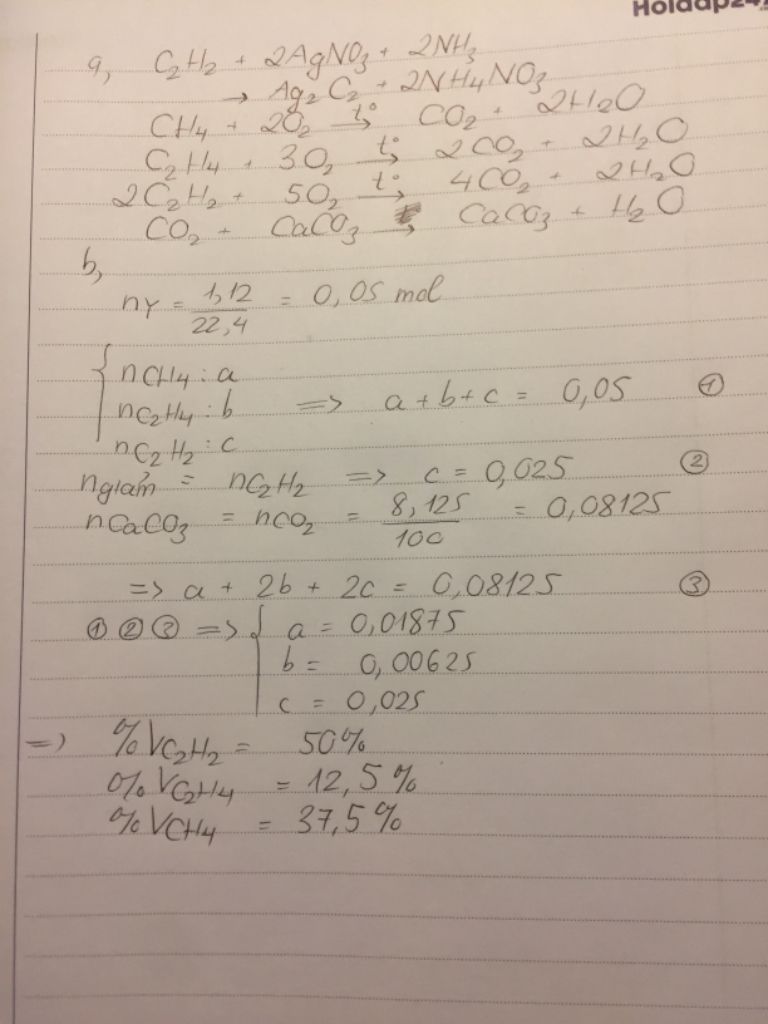 Hoidap247
a, C₂H₂ + 2AgNO₃ + 2NH₃
→ Ag₂C₂ + 2NH₄NO₃
CH₄ + 2O₂ –t°→ CO₂ + 2H₂O
C₂H₄ + 3O₂ –t°→ 2CO₂ + 2H₂O
2C₂H₂ + 5O₂ –t°→ 4CO₂ + 2H₂O
CO₂ + CaCO₃ → CaCO₃ + H₂O
b,
nY = 1,12/22,4 = 0,05 mol
{ nCH₄ : a
nC₂H₄ : b => a + b + c = 0,05 ①
nC₂H₂ : c
n giảm = nC₂H₂ => c = 0,025 ②
nCaCO₃ = nCO₂ = 8,125/100 = 0,08125
=> a + 2b + 2c = 0,08125 ③
① ② ③ => { a = 0,01875
b = 0,00625
c = 0,025
=> %VC₂H₂ = 50%
%VC₂H₄ = 12,5%
%VCH₄ = 37,5%